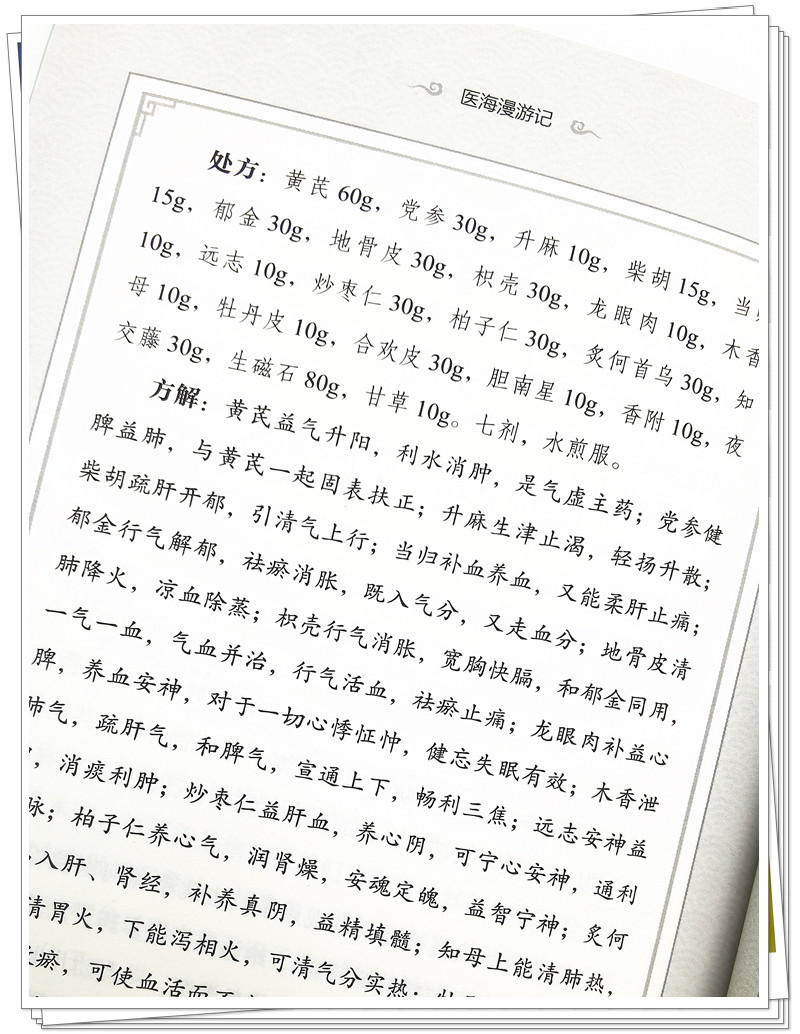 医海漫游记
处方：黄芪 60g，党参 30g，升麻 10g，柴胡 15g，当
15g，郁金 30g，地骨皮 30g，枳壳 30g，龙眼肉 10g，木香
10g，远志 10g，炒枣仁 30g，柏子仁 30g，炙何首乌 30g，知
母 10g，牡丹皮 10g，合欢皮 30g，胆南星 10g，香附 10g，夜
交藤 30g，生磁石 80g，甘草 10g。七剂，水煎服。
方解：黄芪益气升阳，利水消肿，是气虚主药；党参健
脾益肺，与黄芪一起固表扶正；升麻生津止渴，轻扬升散；
柴胡疏肝开郁，引清气上行；当归补血养血，又能柔肝止痛；
郁金行气解郁，祛瘀消胀，既入气分，又走血分；地骨皮清
肺降火，凉血除蒸；枳壳行气消胀，宽胸快膈，和郁金同用，
一气一血，气血并治，行气活血，祛瘀止痛；龙眼肉补益心
脾，养血安神，对于一切心悸怔忡，健忘失眠有效；木香泄
肺气，疏肝气，和脾气，宣通上下，畅利三焦；远志安神益
，消痰利肿；炒枣仁益肝血，养心阴，可宁心安神，通利
；柏子仁养心气，润肾燥，安魂定魄，益智宁神；炙何
入肝、肾经，补养真阴，益精填髓；知母上能清肺热，
清胃火，下能泻相火，可清气分实热；
瘀，可使血活而